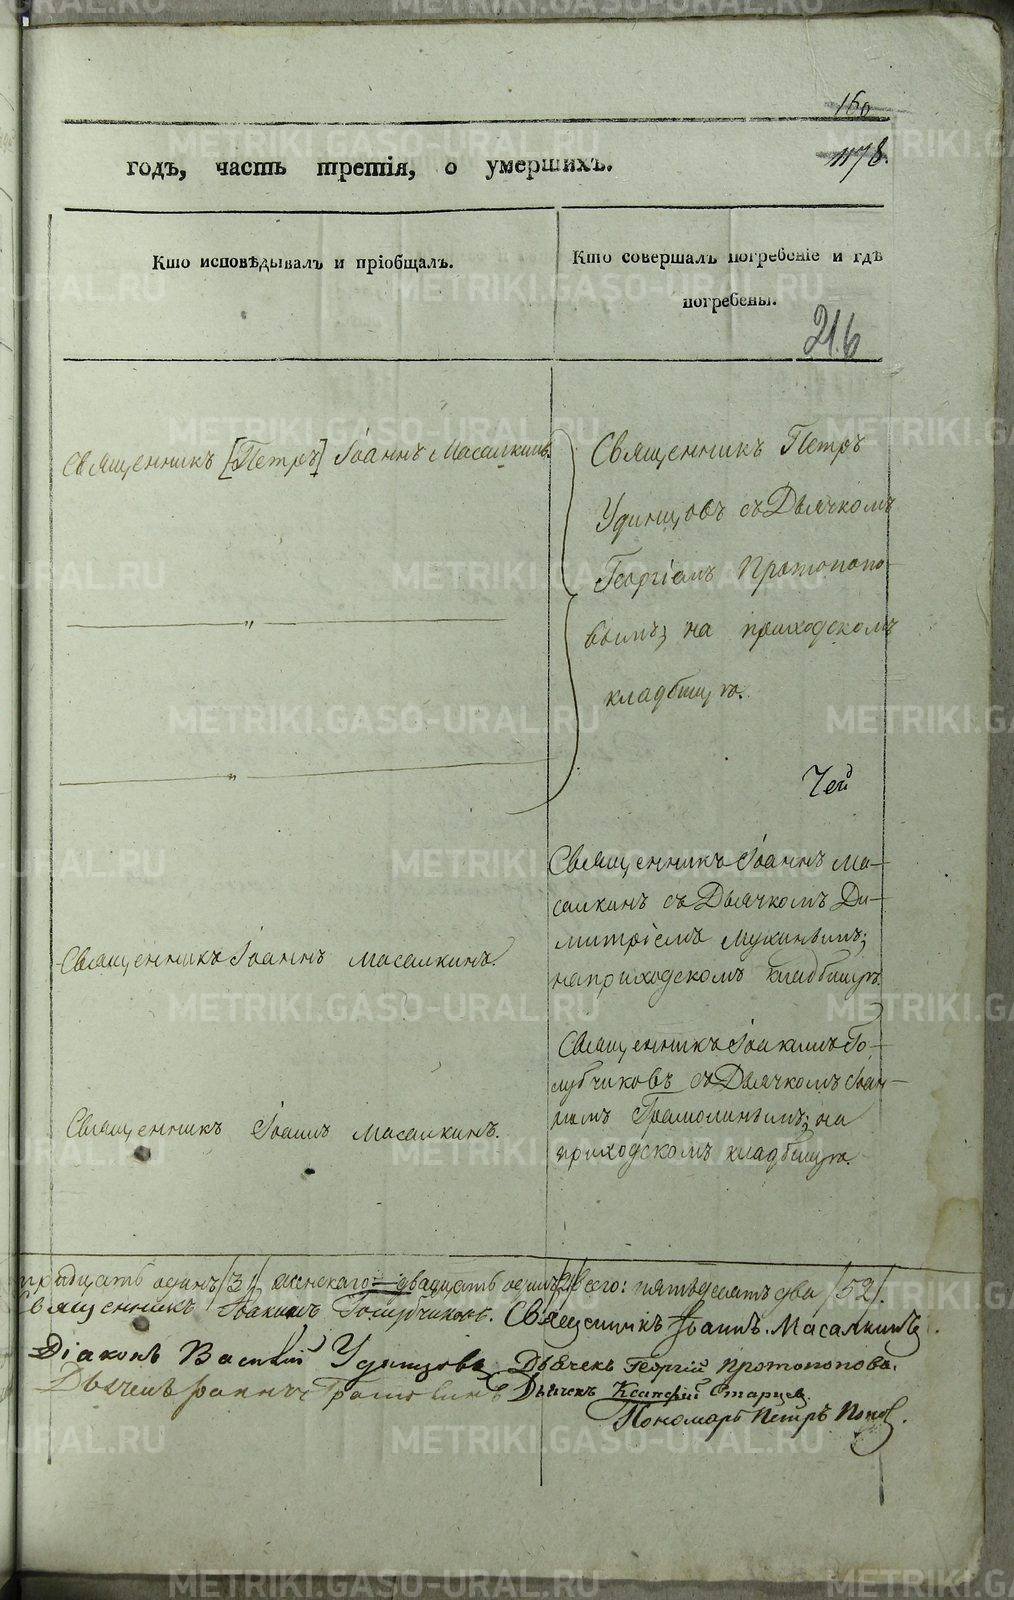 160
1178.
годъ, часть третія, о умершихъ.
Кто исповѣдывалъ и пріобщалъ.
Кто совершалъ погребеніе и гдѣ
погребены.
216
Священникъ [Петръ] Іоаннъ Масалкинъ.
Священникъ Петръ
Удинцовъ съ Дьячкомъ
Георгіемъ Протопопо-
вымъ; на приходскомъ
кладбищѣ.
"
"
Священникъ Іоаннъ Ма-
салкинъ съ Дьячкомъ Ди-
митріемъ Мухинымъ;
на приходскомъ кладбищѣ.
Священникъ Іоаннъ Масалкинъ.
Священникъ Іоакимъ Го-
лубчиковъ съ Дьячкомъ Іоан-
номъ Грамолинымъ; на
приходскомъ кладбищѣ.
Священникъ Іоаннъ Масалкинъ.
тридцать одинъ /31/ женскаго: двадцать одинъ /21/ всего: пятьдесятъ два /52/.
Священникъ Іоакимъ Голубчиковъ. Священникъ Іоаннъ Масалкинъ.
Діаконъ Василій Удинцовъ Дьячекъ Георгій Протопоповъ.
Дьячекъ Іоаннъ Грамолинъ Дьячекъ Старцев
Пономарь Петръ Попов.
METRIKI.GASO-URAL.RU